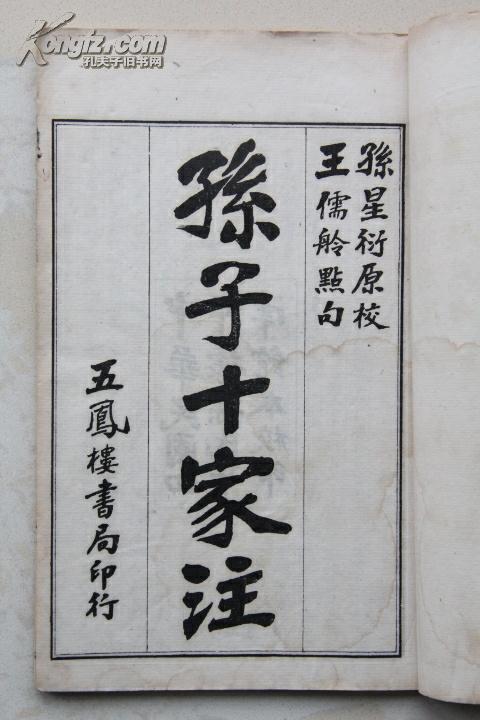 Kongfz.com
孔夫子旧书网
孫星衍原校
王儒舲點句
孫子十家注
五鳳樓書局印行